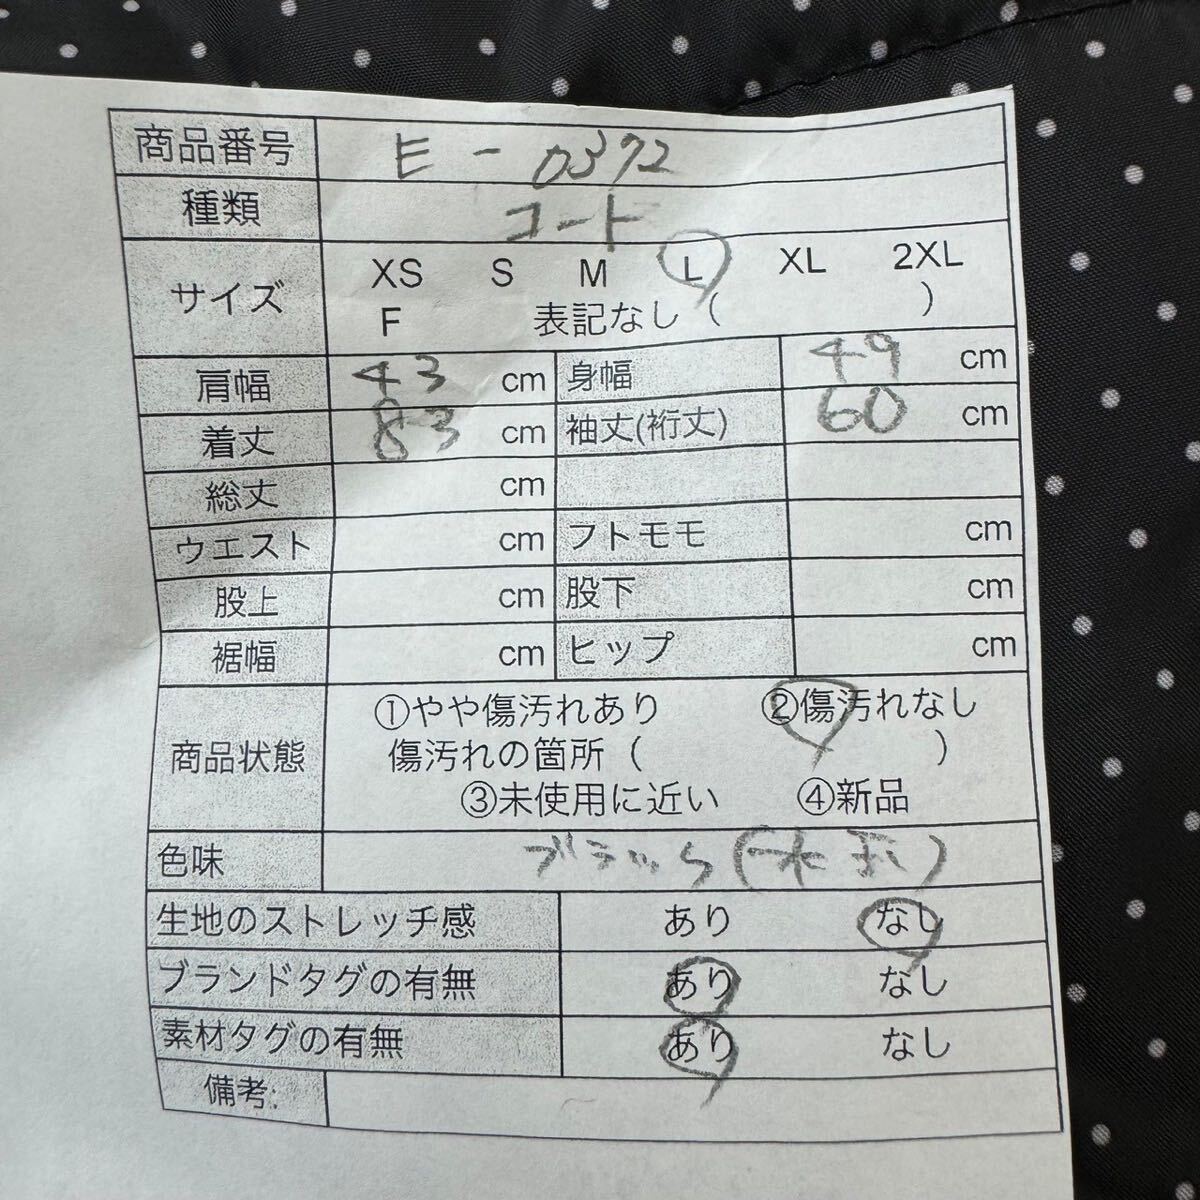 商品番号 E-0372
種類 コート
サイズ XS S M L XL 2XL
F 表記なし ( )
肩幅 43 cm 身幅 49 cm
着丈 83 cm 袖丈(裄丈) 60 cm
総丈 cm
ウエスト cm フトモモ cm
股上 cm 股下 cm
裾幅 cm ヒップ cm
商品状態 ①やや傷汚れあり ②傷汚れなし
傷汚れの箇所 ( )
③未使用に近い ④新品
色味 ブラック(水玉)
生地のストレッチ感 あり なし
ブランドタグの有無 あり なし
素材タグの有無 あり なし
備考: